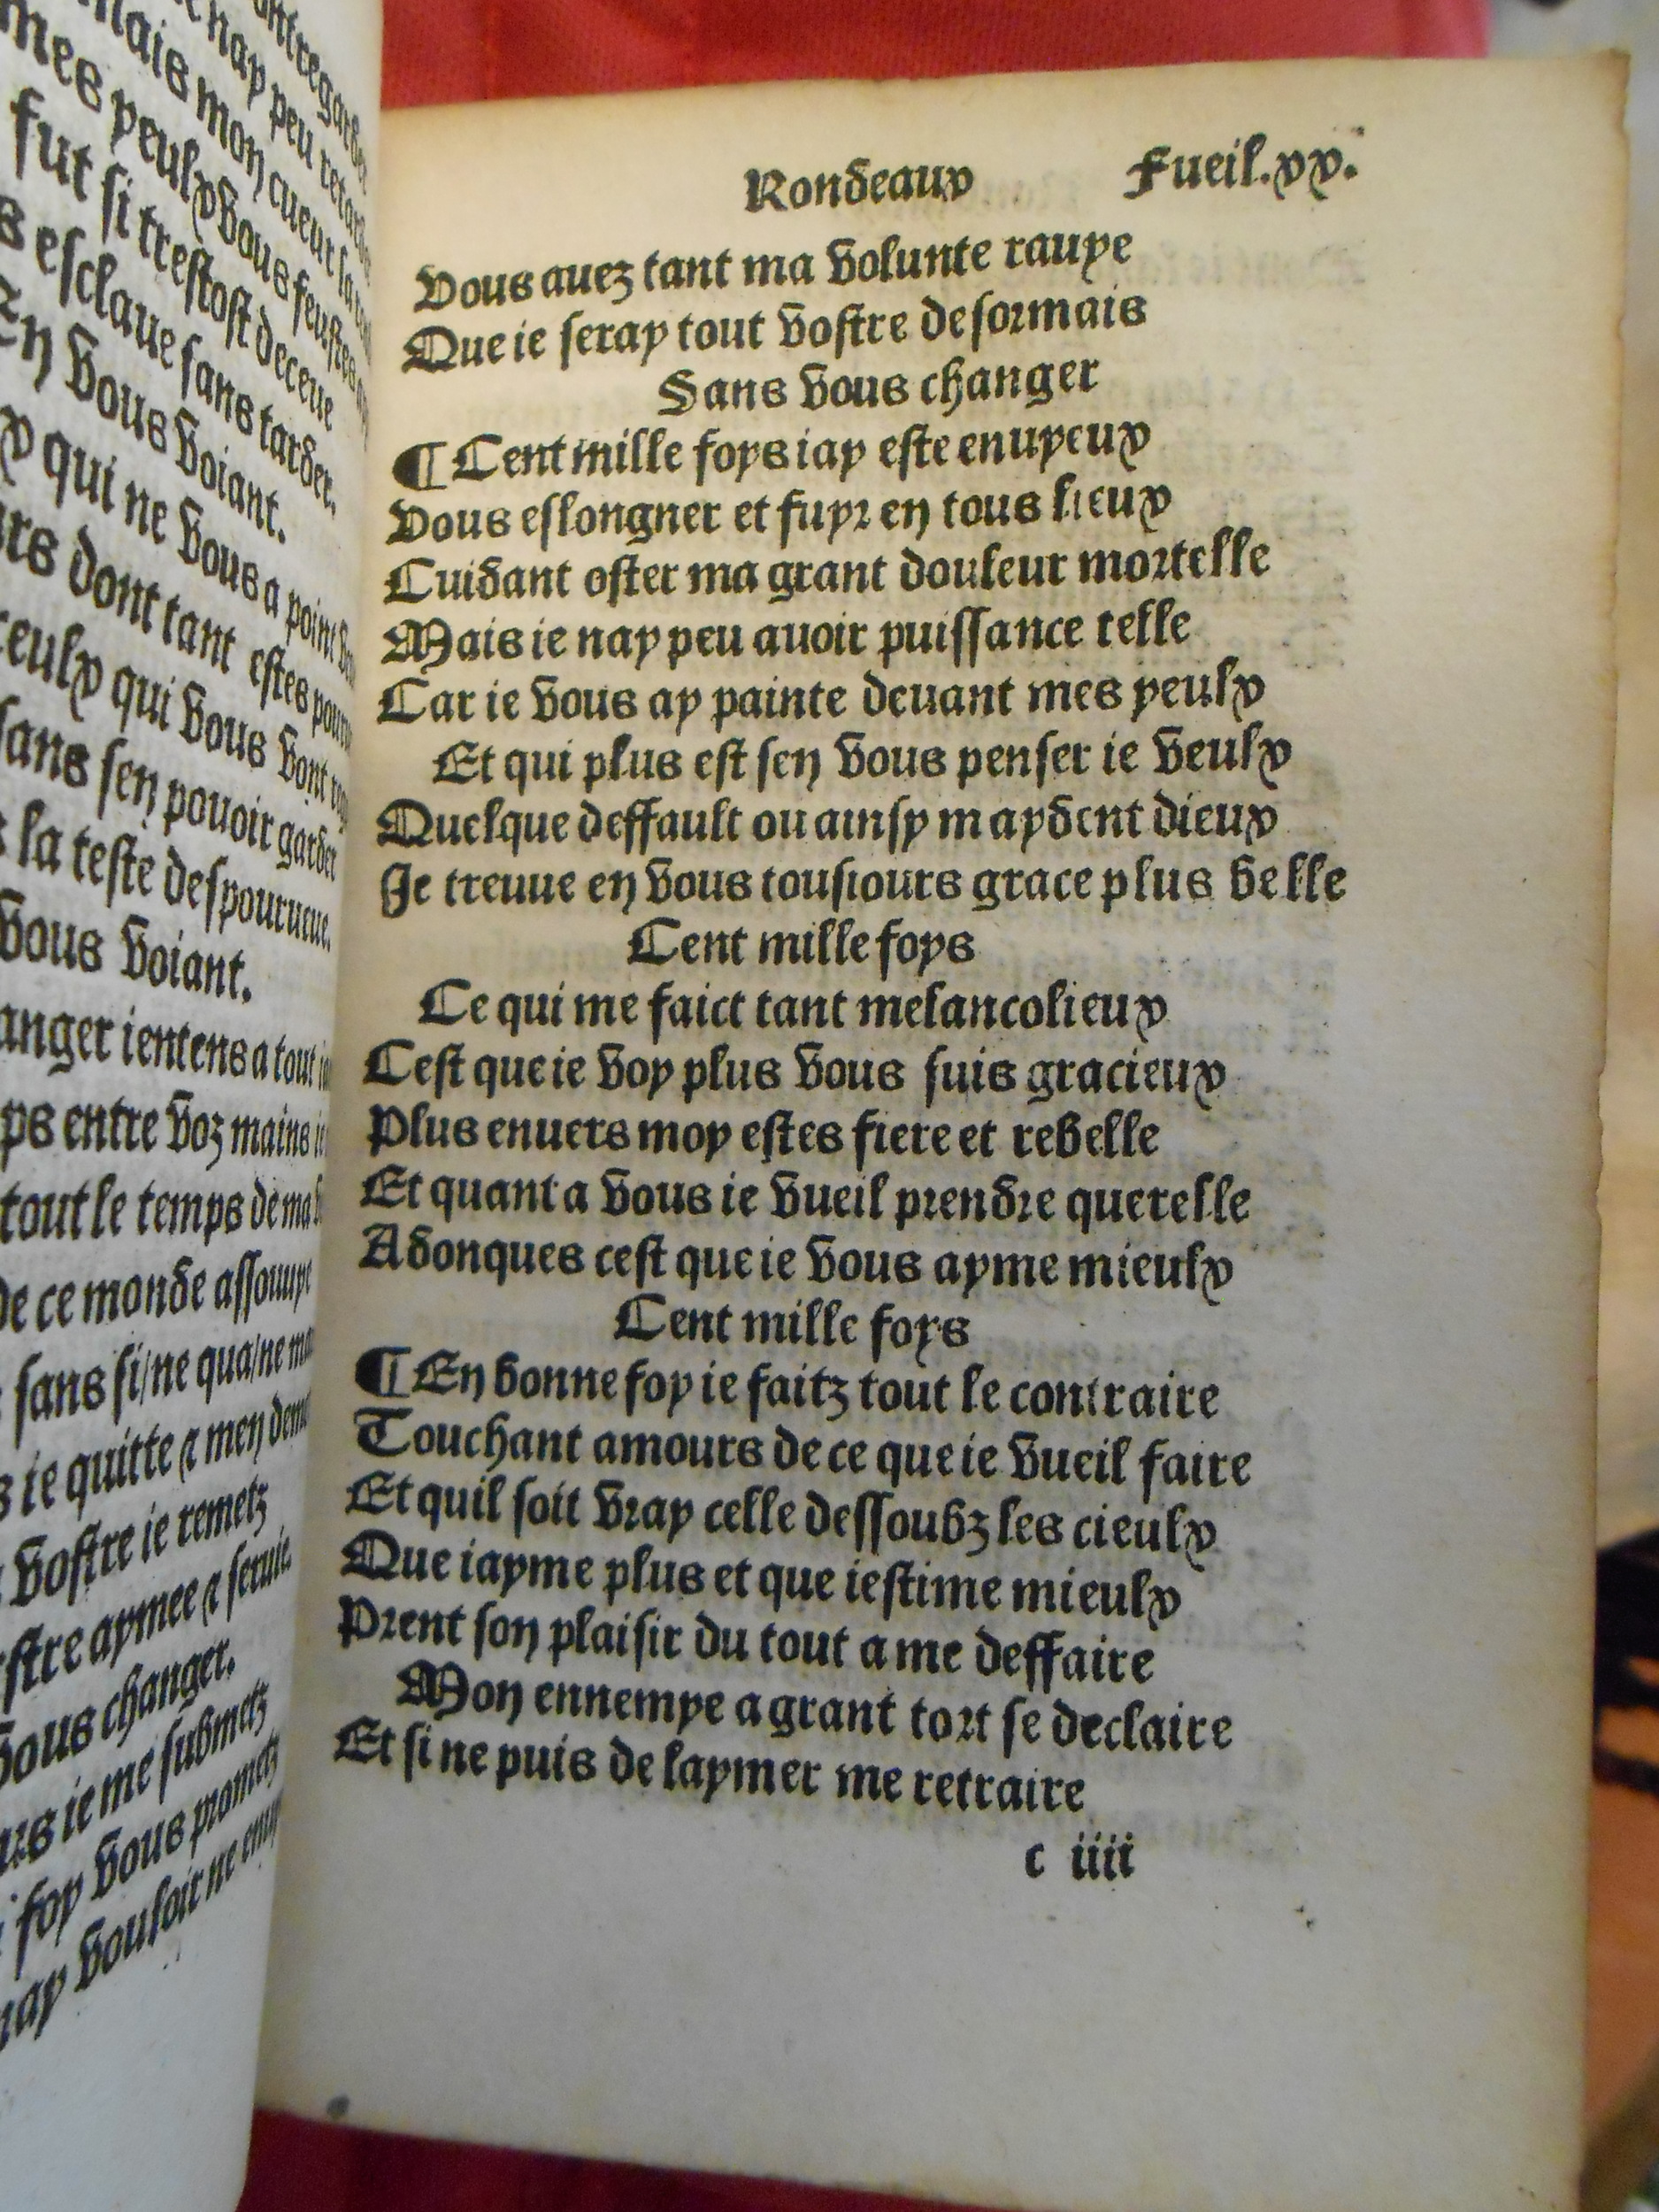 ontregarder
nay peu retarder
mais mon cueur la
mes yeulx vous feustes
fut si trestost deceue
s esclaue sans tarder.
En vous voiant.
y qui ne vous a point
rs dont tant estes
ceulx qui vous vont
sans sen pouoir garder
la teste despourueue.
vous voiant.
anger ientens a tout
ps entre voz mains
tout le temps de ma
de ce monde assouuye
sans si/ne qua/ne
z ie quitte & men
vostre ie remetz
stre aymee & seruie
vous changer.
us ie me submetz
foy vous prometz
nay vouloir ne
Rondeaux Fueil.xx.
Vous auez tant ma volunte rauye
Que ie seray tout vostre desormais
Sans vous changer
¶ Cent mille foys iay este enuyeux
Vous eslongner et fuyr en tous lieux
Cuidant oster ma grant douleur mortelle
Mais ie nay peu auoir puissance telle
Car ie vous ay painte deuant mes yeulx
Et qui plus est sen vous penser ie veulx
Quelque deffault ou ainsy maydent dieux
Je treuue en vous tousiours grace plus belle
Cent mille foys
Ce qui me faict tant melancolieux
Cest que ie voy plus vous suis gracieux
Plus enuers moy estes fiere et rebelle
Et quant a vous ie vueil prendre querelle
Adonques cest que ie vous ayme mieulx
Cent mille foys
¶ En bonne foy ie faitz tout le contraire
Touchant amours de ce que ie vueil faire
Et quil soit vray celle dessoubz les cieulx
Que iayme plus et que iestime mieulx
Prent son plaisir du tout a me deffaire
Mon ennemye a grant tort se declaire
Et si ne puis de laymer me retraire
c iiii